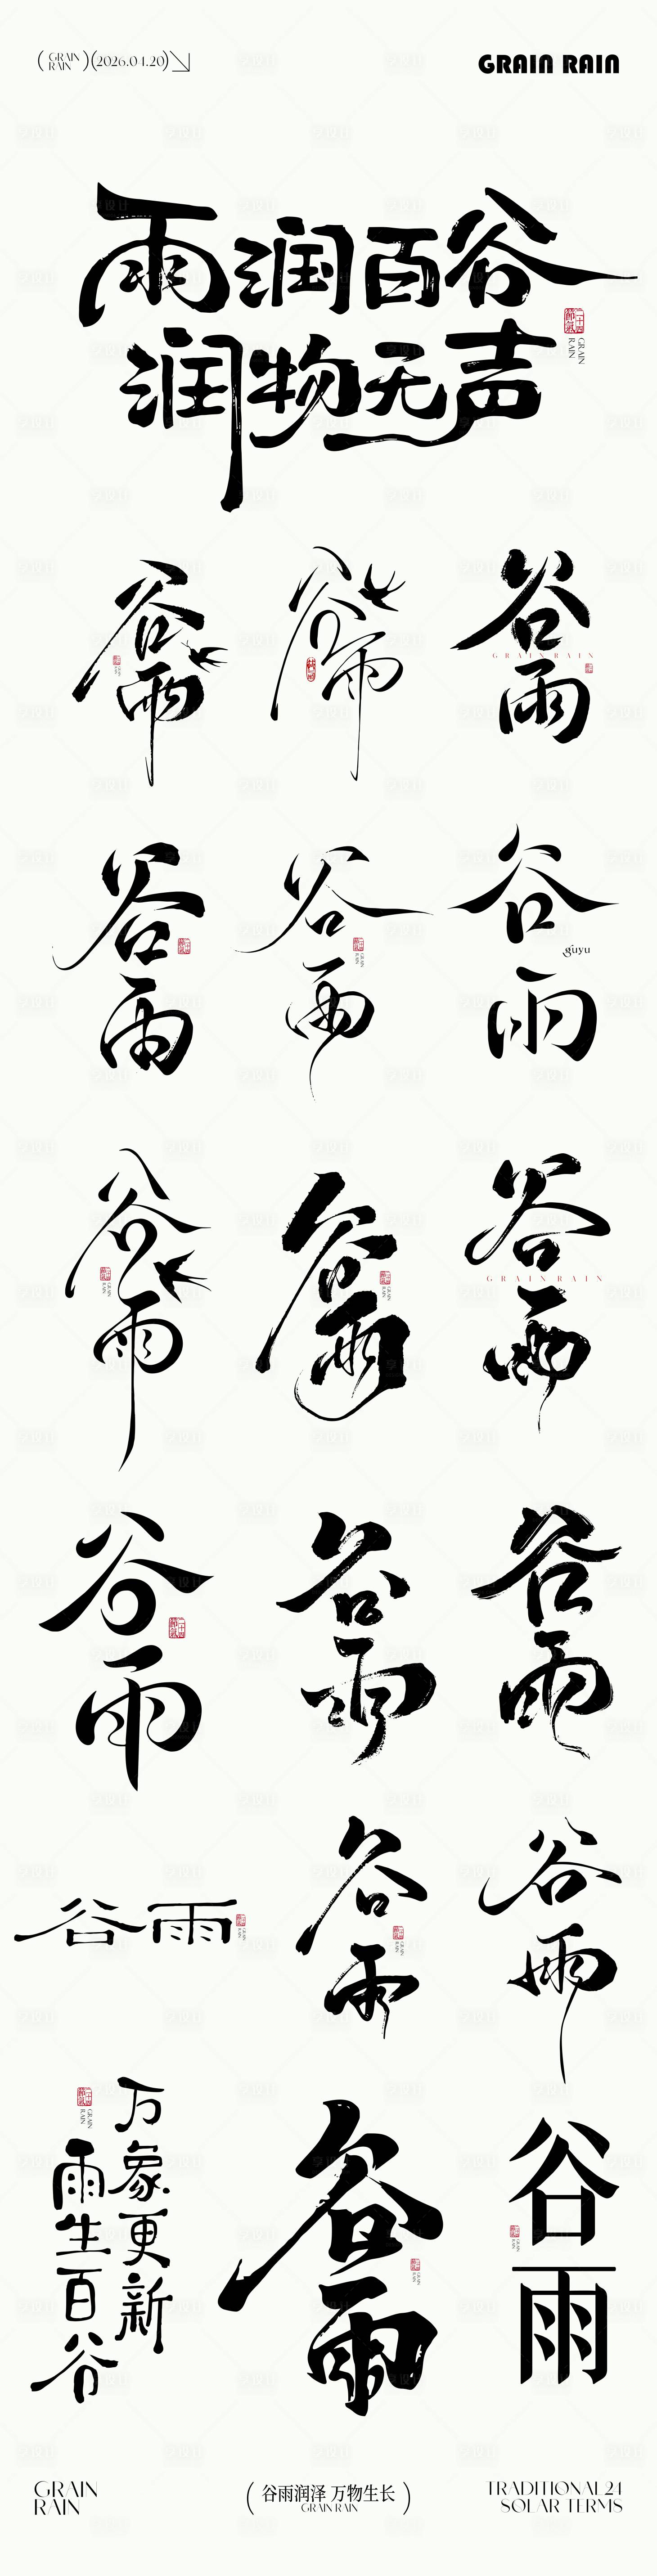 ( GRAIN RAIN )(2026.04.20)
GRAIN RAIN
雨润百谷
润物无声
二十四节氣
GRAIN RAIN
谷雨
谷雨
谷雨
GRAIN RAIN
谷雨
谷雨
GRAIN RAIN
谷雨
guyu
谷雨
GRAIN RAIN
谷雨
GRAIN RAIN
谷雨
GRAIN RAIN
谷雨
二十四节氣
谷雨
谷雨
谷雨
GRAIN RAIN
谷雨
GRAIN RAIN
谷雨
万象更新
雨生百谷
二十四节氣
GRAIN RAIN
谷雨
GRAIN RAIN
谷雨
GRAIN RAIN
GRAIN
RAIN
( 谷雨润泽 万物生长 )
GRAIN RAIN
TRADITIONAL 24
SOLAR TERMS